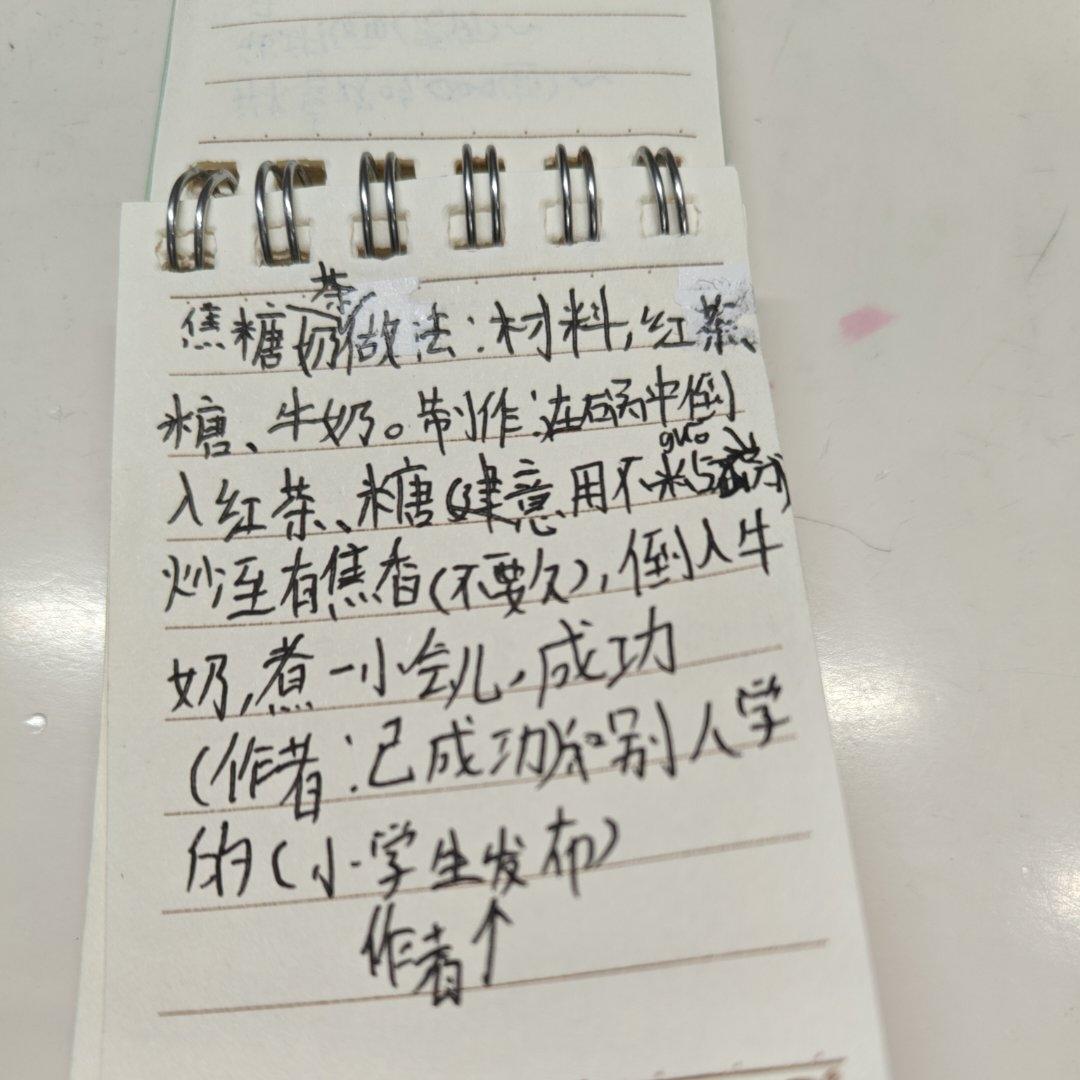 焦糖奶茶做法:材料,红茶、
糖、牛奶。制作:在锅中倒
guo
入红茶、糖(建意用不粘锅)
炒至有焦香(不要久),倒入牛
奶,煮一小会儿,成功
(作者:已成功)和别人学
的(小学生发布)
作者↑